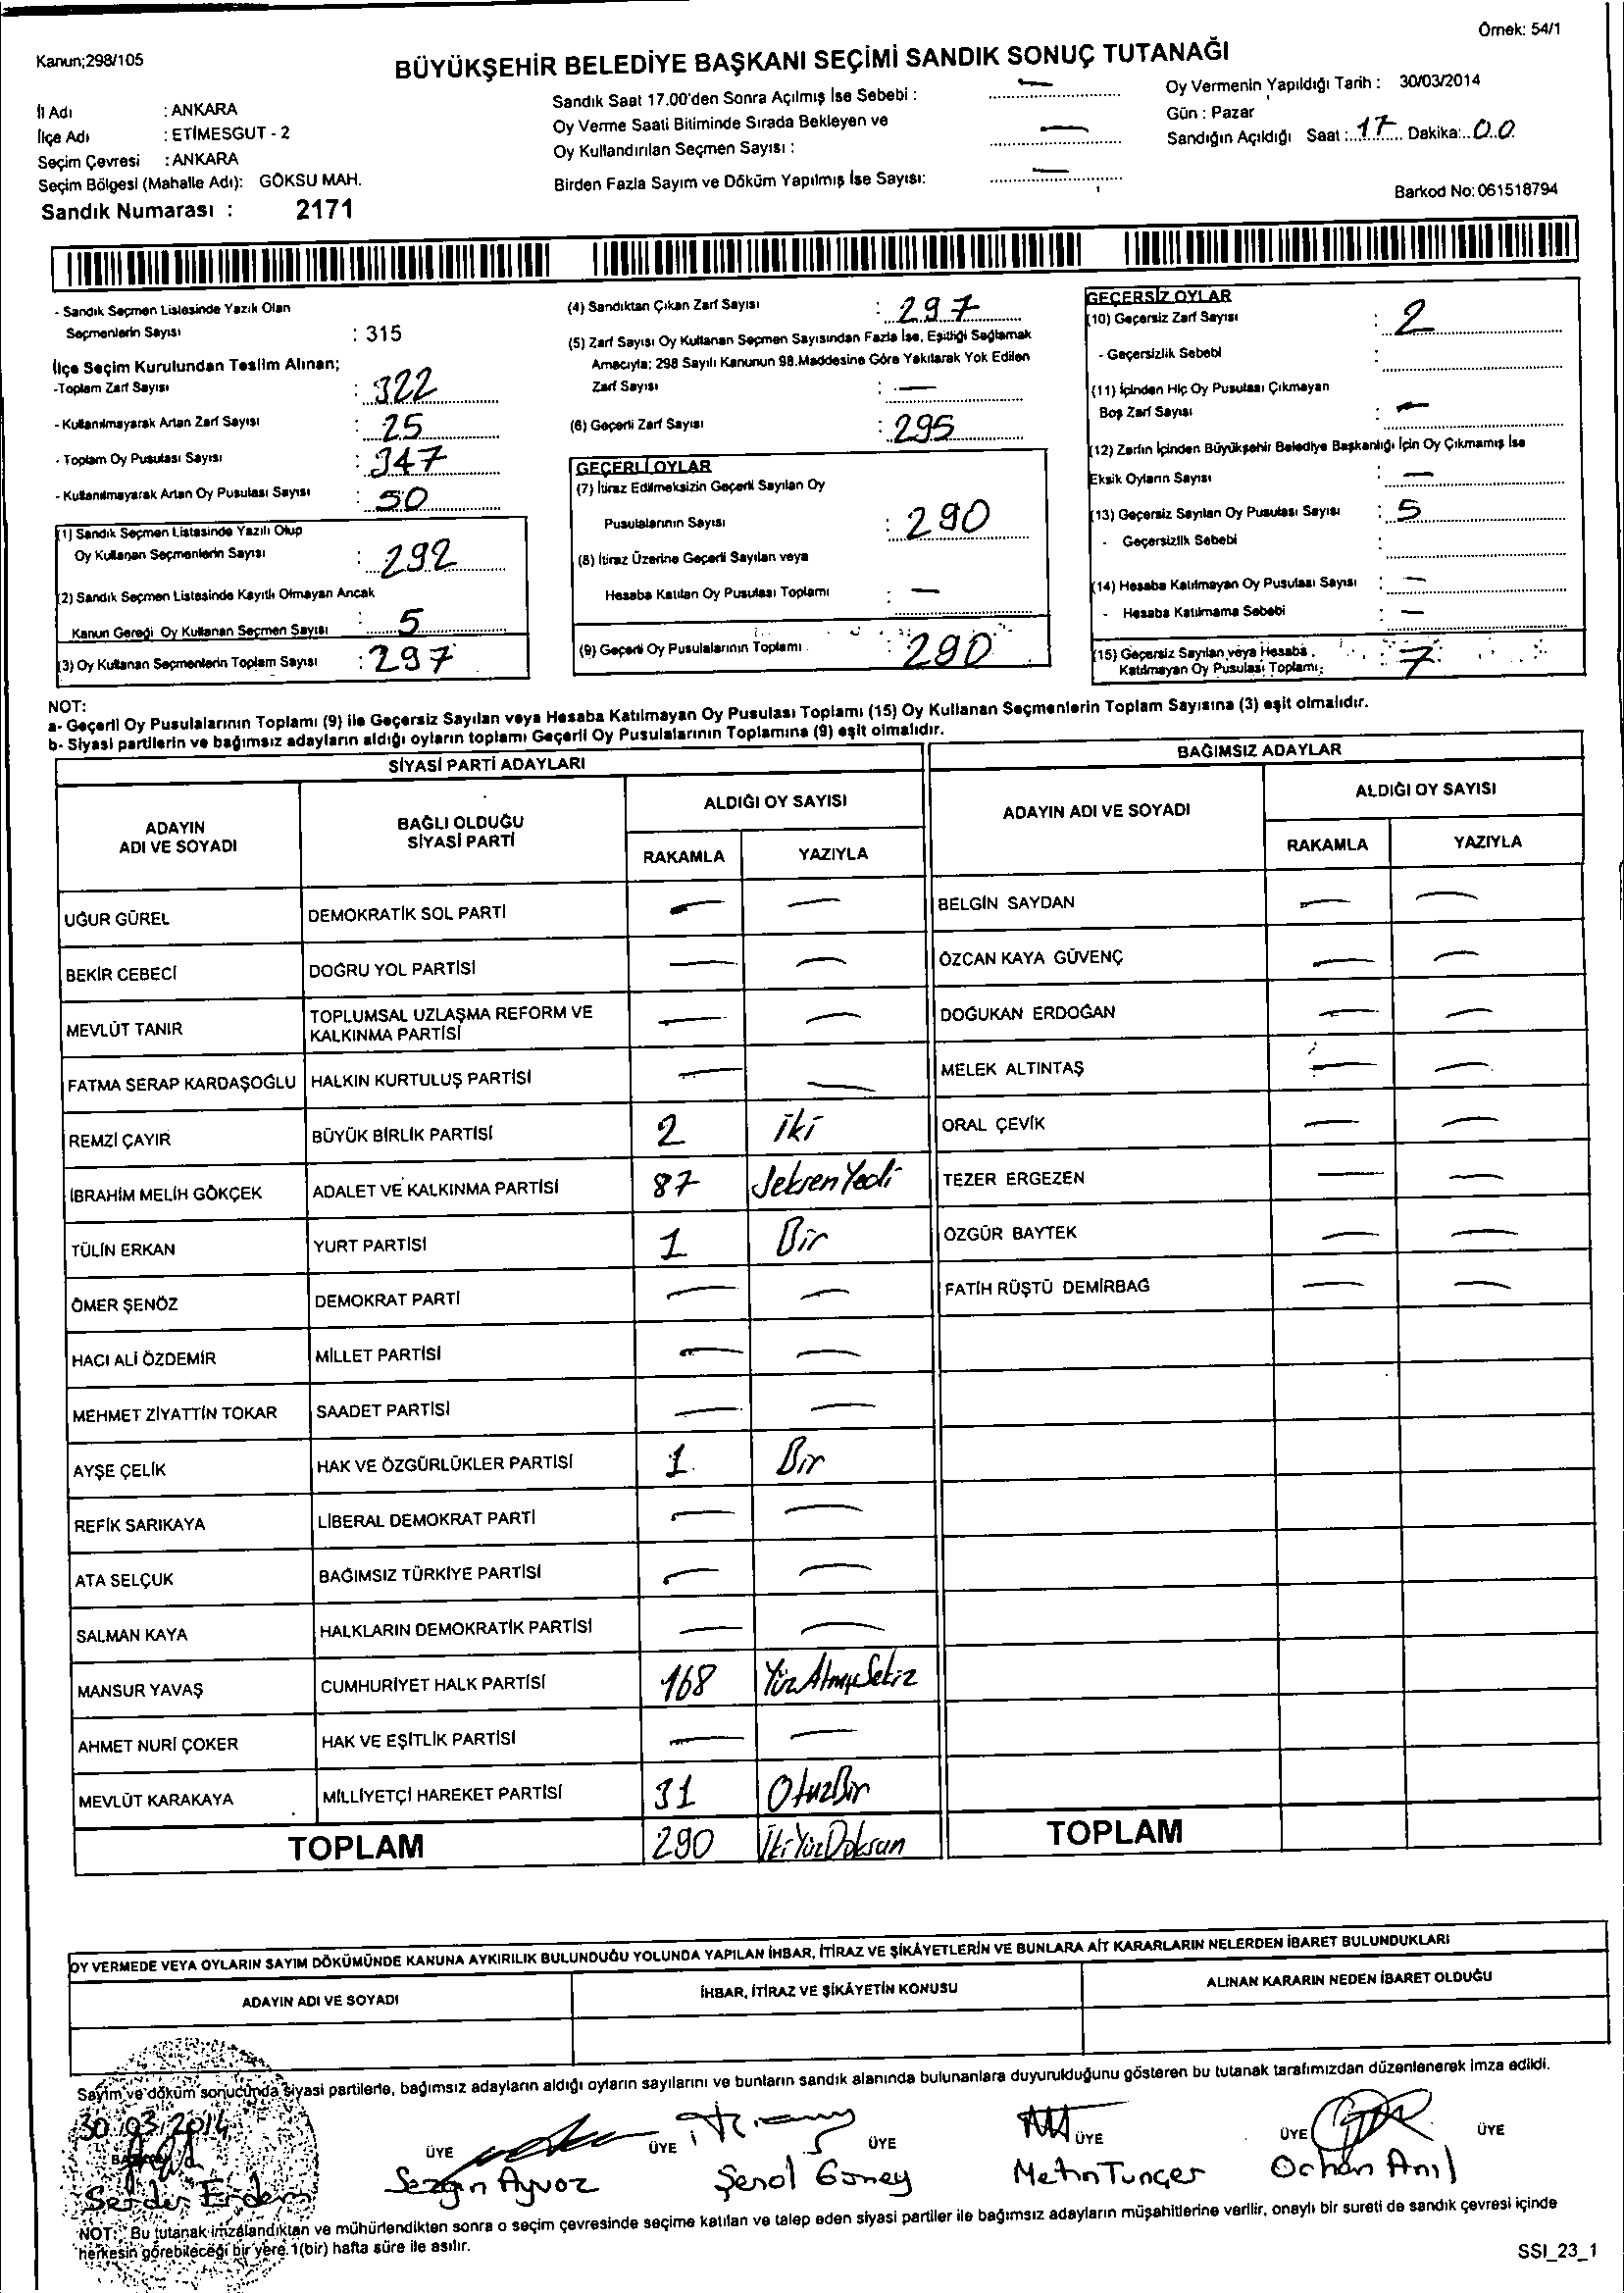 Örnek: 54/1
Kanun;298/105
BÜYÜKŞEHİR BELEDİYE BAŞKANI SEÇİMİ SANDIK SONUÇ TUTANAĞI
İl Adı : ANKARA
İlçe Adı : ETİMESGUT - 2
Seçim Çevresi : ANKARA
Seçim Bölgesi (Mahalle Adı): GÖKSU MAH.
Sandık Numarası : 2171
Sandık Saat 17.00'den Sonra Açılmış İse Sebebi : —
Oy Verme Saati Bitiminde Sırada Bekleyen ve
Oy Kullandırılan Seçmen Sayısı : —
Birden Fazla Sayım ve Döküm Yapılmış İse Sayısı: —
Oy Vermenin Yapıldığı Tarih : 30/03/2014
Gün : Pazar
Sandığın Açıldığı Saat : 17 Dakika: 00
Barkod No: 061518794
- Sandık Seçmen Listesinde Yazılı Olan
Seçmenlerin Sayısı : 315
İlçe Seçim Kurulundan Teslim Alınan;
-Toplam Zarf Sayısı : 322
- Kullanılmayarak Artan Zarf Sayısı : 25
- Toplam Oy Pusulası Sayısı : 347
- Kullanılmayarak Artan Oy Pusulası Sayısı : 50
(1) Sandık Seçmen Listesinde Yazılı Olup
Oy Kullanan Seçmenlerin Sayısı : 292
(2) Sandık Seçmen Listesinde Kayıtlı Olmayan Ancak
Kanun Gereği Oy Kullanan Seçmen Sayısı : 5
(3) Oy Kullanan Seçmenlerin Toplam Sayısı : 297
(4) Sandıktan Çıkan Zarf Sayısı : 297
(5) Zarf Sayısı Oy Kullanan Seçmen Sayısından Fazla İse, Eşitliği Sağlamak
Amacıyla; 298 Sayılı Kanunun 98.Maddesine Göre Yakılarak Yok Edilen
Zarf Sayısı : —
(6) Geçerli Zarf Sayısı : 295
GEÇERLİ OYLAR
(7) İtiraz Edilmeksizin Geçerli Sayılan Oy
Pusulalarının Sayısı : 290
(8) İtiraz Üzerine Geçerli Sayılan veya
Hesaba Katılan Oy Pusulası Toplamı : —
(9) Geçerli Oy Pusulalarının Toplamı : 290
GEÇERSİZ OYLAR
(10) Geçersiz Zarf Sayısı : 2
- Geçersizlik Sebebi :
(11) İçinden Hiç Oy Pusulası Çıkmayan
Boş Zarf Sayısı : —
(12) Zarfın İçinden Büyükşehir Belediye Başkanlığı İçin Oy Çıkmamış İse
Eksik Oyların Sayısı : —
(13) Geçersiz Sayılan Oy Pusulası Sayısı : 5
- Geçersizlik Sebebi :
(14) Hesaba Katılmayan Oy Pusulası Sayısı : —
- Hesaba Katılmama Sebebi : —
(15) Geçersiz Sayılan veya Hesaba
Katılmayan Oy Pusulası Toplamı: 7
NOT:
a- Geçerli Oy Pusulalarının Toplamı (9) ile Geçersiz Sayılan veya Hesaba Katılmayan Oy Pusulası Toplamı (15) Oy Kullanan Seçmenlerin Toplam Sayısına (3) eşit olmalıdır.
b- Siyasi partilerin ve bağımsız adayların aldığı oyların toplamı Geçerli Oy Pusulalarının Toplamına (9) eşit olmalıdır.
SİYASİ PARTİ ADAYLARI
ADAYIN ADI VE SOYADI BAĞLI OLDUĞU SİYASİ PARTİ ALDIĞI OY SAYISI
RAKAMLA YAZIYLA
UĞUR GÜREL DEMOKRATİK SOL PARTİ — —
BEKİR CEBECİ DOĞRU YOL PARTİSİ — —
MEVLÜT TANIR TOPLUMSAL UZLAŞMA REFORM VE KALKINMA PARTİSİ — —
FATMA SERAP KARDAŞOĞLU HALKIN KURTULUŞ PARTİSİ — —
REMZİ ÇAYIR BÜYÜK BİRLİK PARTİSİ 2 iki
İBRAHİM MELİH GÖKÇEK ADALET VE KALKINMA PARTİSİ 87 SeksenYedi
TÜLİN ERKAN YURT PARTİSİ 1 Bir
ÖMER ŞENÖZ DEMOKRAT PARTİ — —
HACI ALİ ÖZDEMİR MİLLET PARTİSİ — —
MEHMET ZİYATTİN TOKAR SAADET PARTİSİ — —
AYŞE ÇELİK HAK VE ÖZGÜRLÜKLER PARTİSİ 1 Bir
REFİK SARIKAYA LİBERAL DEMOKRAT PARTİ — —
ATA SELÇUK BAĞIMSIZ TÜRKİYE PARTİSİ — —
SALMAN KAYA HALKLARIN DEMOKRATİK PARTİSİ — —
MANSUR YAVAŞ CUMHURİYET HALK PARTİSİ 168 YüzAtmışSekiz
AHMET NURİ ÇOKER HAK VE EŞİTLİK PARTİSİ — —
MEVLÜT KARAKAYA MİLLİYETÇİ HAREKET PARTİSİ 31 OtuzBir
TOPLAM 290 İkiYüzDoksan
BAĞIMSIZ ADAYLAR
ADAYIN ADI VE SOYADI ALDIĞI OY SAYISI
RAKAMLA YAZIYLA
BELGİN SAYDAN — —
ÖZCAN KAYA GÜVENÇ — —
DOĞUKAN ERDOĞAN — —
MELEK ALTINTAŞ — —
ORAL ÇEVİK — —
TEZER ERGEZEN — —
ÖZGÜR BAYTEK — —
FATİH RÜŞTÜ DEMİRBAĞ — —
TOPLAM
OY VERMEDE VEYA OYLARIN SAYIM DÖKÜMÜNDE KANUNA AYKIRILIK BULUNDUĞU YOLUNDA YAPILAN İHBAR, İTİRAZ VE ŞİKÂYETLERİN VE BUNLARA AİT KARARLARIN NELERDEN İBARET BULUNDUKLARI
ADAYIN ADI VE SOYADI İHBAR, İTİRAZ VE ŞİKÂYETİN KONUSU ALINAN KARARIN NEDEN İBARET OLDUĞU
Sayım ve döküm sonucunda siyasi partilerle, bağımsız adayların aldığı oyların sayılarını ve bunların sandık alanında bulunanlara duyurulduğunu gösteren bu tutanak tarafımızdan düzenlenerek imza edildi.
30/03/2014
ÜYE ÜYE ÜYE ÜYE ÜYE ÜYE
Serdar Erdem Sezgin Ayvoz Şenol Güney Metin Tunçer Orhan Anıl
NOT: Bu tutanak imzalandıktan ve mühürlendikten sonra o seçim çevresinde seçime katılan ve talep eden siyasi partiler ile bağımsız adayların müşahitlerine verilir, onaylı bir sureti de sandık çevresi içinde
herkesin görebileceği bir yere 1(bir) hafta süre ile asılır.
SSI_23_1